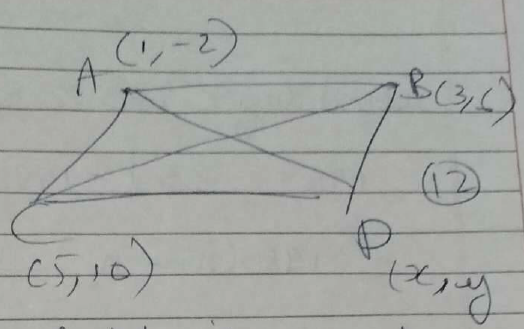 A (1,-2)
B (3,6)
(12)
C
(5,10)
D
(x,y